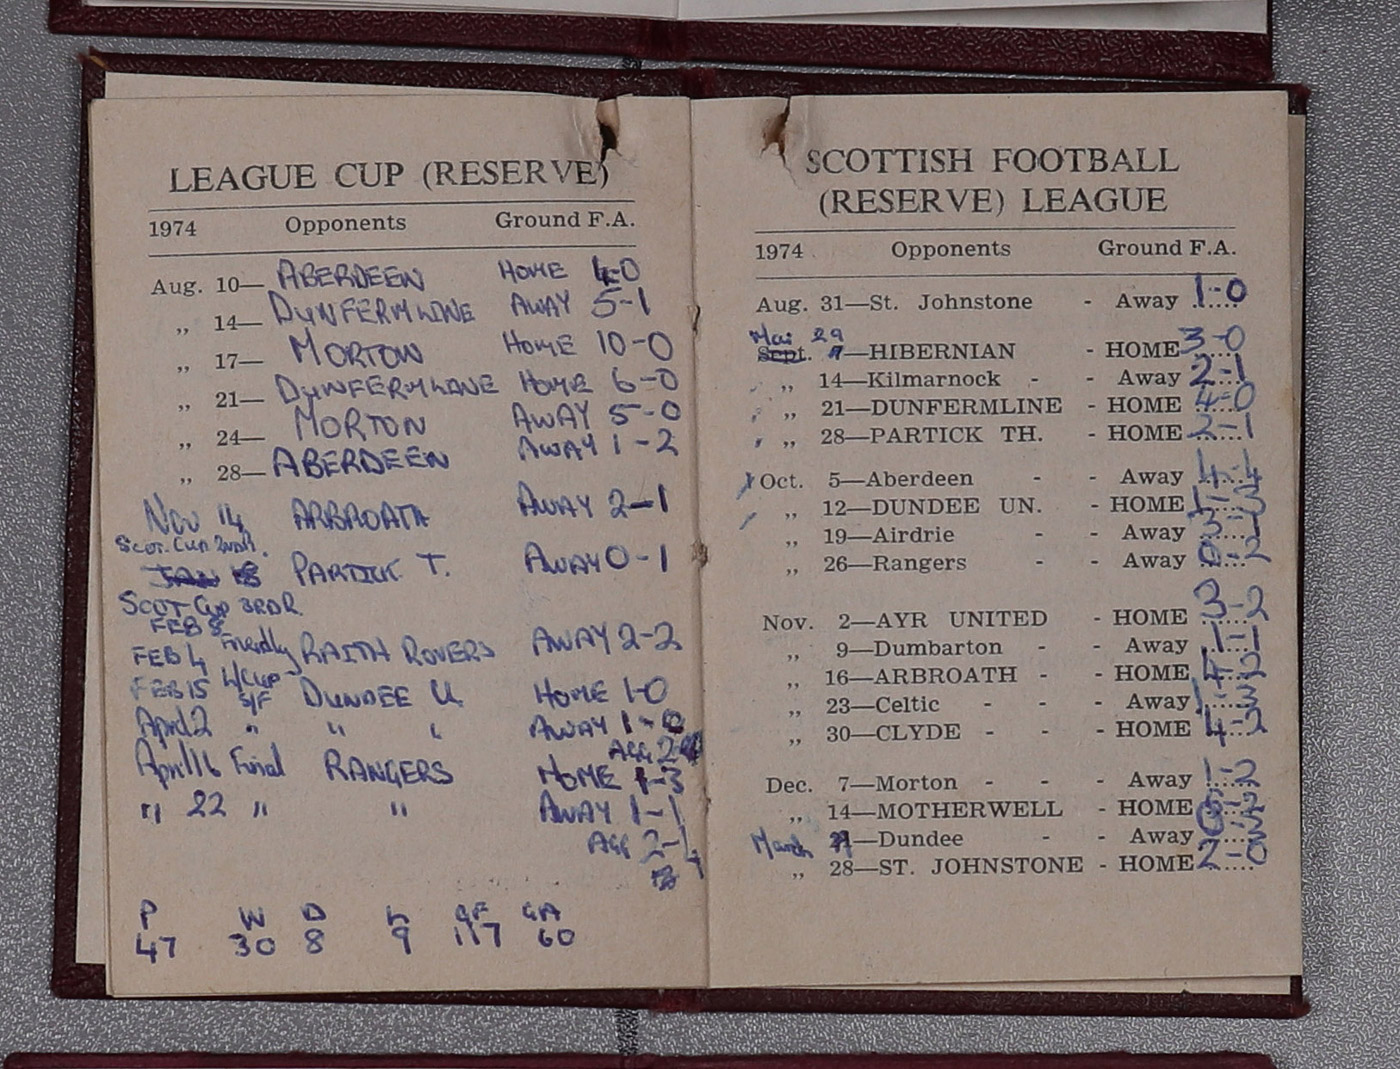 LEAGUE CUP (RESERVE)
1974 Opponents Ground F.A.
Aug. 10— ABERDEEN HOME 4-0
„ 14— DUNFERMLINE AWAY 5-1
„ 17— MORTON HOME 10-0
„ 21— DUNFERMLINE HOME 6-0
„ 24— MORTON AWAY 5-0
„ 28— ABERDEEN AWAY 1-2
Nov 14 ARBROATH AWAY 2-1
SCOT. CUP 2ND R.
PARTICK T. AWAY 0-1
SCOT CUP 3RD R
FEB 8
FEB 4 Friendly RAITH ROVERS AWAY 2-2
FEB 15 L/CUP S/F DUNDEE U. HOME 1-0
April 2 " " " AWAY 1-0
AGG 2-0
April 16 Final RANGERS HOME 1-3
" 22 " " AWAY 1-1
AGG 2-4
P W D L GF GA
47 30 8 9 117 60
SCOTTISH FOOTBALL
(RESERVE) LEAGUE
1974 Opponents Ground F.A.
Aug. 31—St. Johnstone - Away 1-0
Mar 29
Sept. 7—HIBERNIAN - HOME 3-0
„ 14—Kilmarnock - - Away 2-1
„ 21—DUNFERMLINE - HOME 4-0
„ 28—PARTICK TH. - HOME 2-1
Oct. 5—Aberdeen - - Away 4-4
„ 12—DUNDEE UN. - HOME
„ 19—Airdrie - - Away 3-1
„ 26—Rangers - - Away 0-2
Nov. 2—AYR UNITED - HOME 3-2
„ 9—Dumbarton - - Away 1-1
„ 16—ARBROATH - - HOME 4-2
„ 23—Celtic - - - Away 1-3
„ 30—CLYDE - - - HOME 4-2
Dec. 7—Morton - - - Away 1-2
„ 14—MOTHERWELL - HOME
March —Dundee - - Away 0-3
„ 28—ST. JOHNSTONE - HOME 2-0